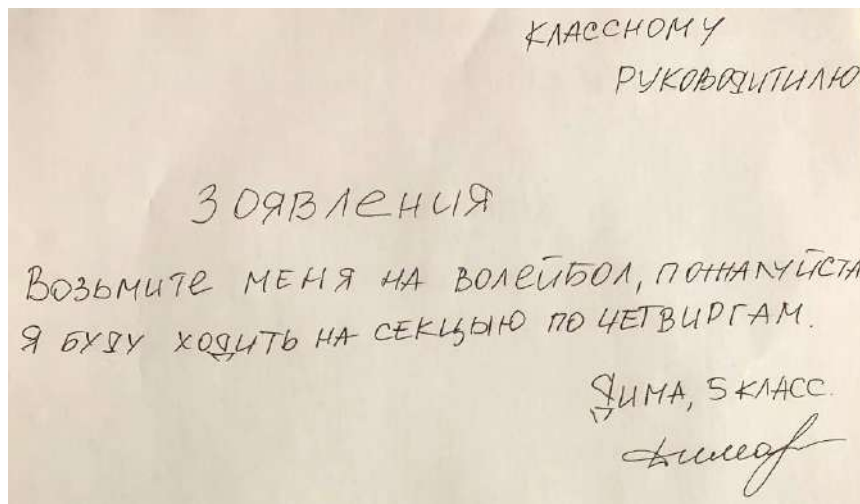 КЛАССНОМУ
РУКОВОДИТИЛЮ
ЗОЯВЛЕНИЯ
ВОЗЬМИТЕ МЕНЯ НА ВОЛЕЙБОЛ, ПОЖАЛУЙСТА
Я БУДУ ХОДИТЬ НА СЕКЦЫЮ ПО ЧЕТВИРГАМ.
ДИМА, 5 КЛАСС.